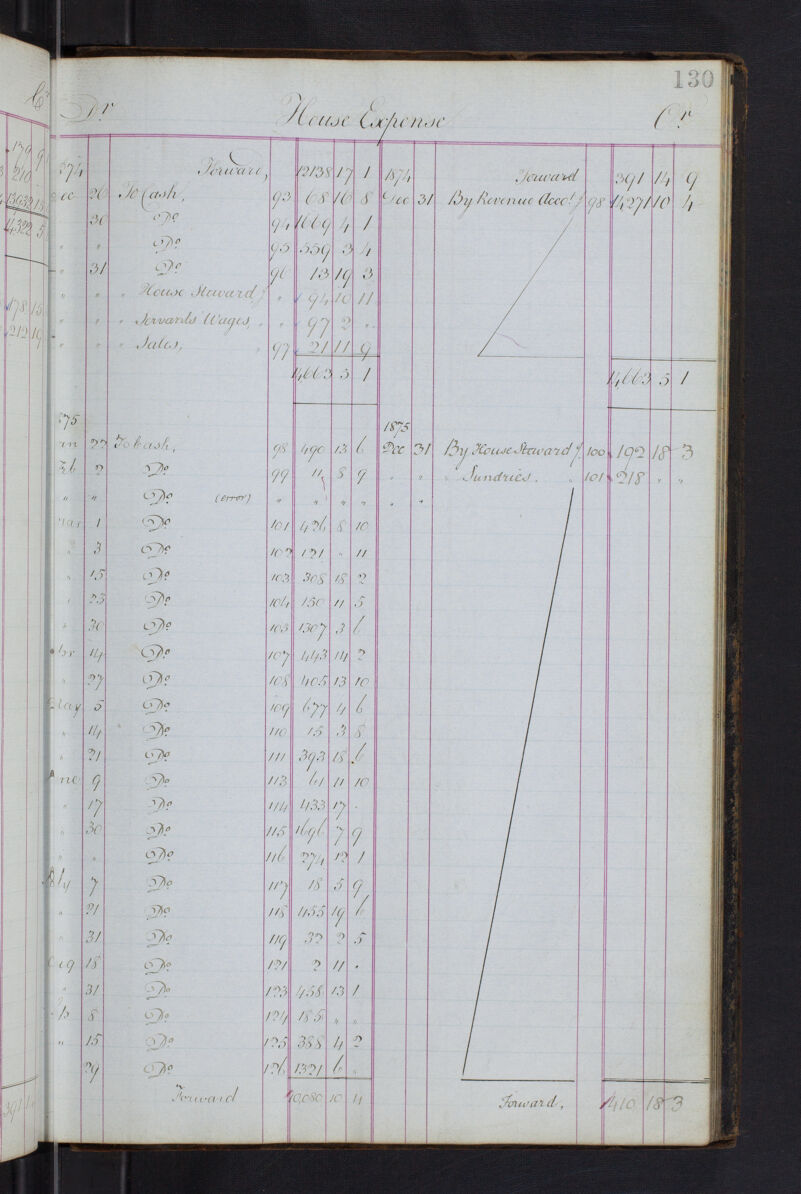 130
Dr House Expense Cr
Forward, 12138 17 1 1874 Forward 391 14 9
26 To Cash, 93 68 16 8 Dec 31 By Revenue Acct. 98 14271 10 4
30 Do 94 1669 4 1
" " Do 95 559 3 4
" 31 Do 96 13 19 3
" " " House Steward " 94 10 11
" " " Servants Wages, " 97 2 "
" " " Sales, 97 21 11 9
14,663 5 1 14,663 5 1
1875
22 To Cash, 98 490 13 6 Dec 31 By House Steward 100 192 18 3
2 Do 99 11 8 9 " " " Sundries. 101 218 " "
" " Do (error) " " " " " "
1 Do 101 426 8 10
3 Do 102 121 " 11
15 Do 103 308 18 2
23 Do 104 150 11 5
30 Do 105 1307 3 6
14 Do 107 443 14 2
27 Do 108 405 13 10
May 5 Do 109 677 4 6
" 14 Do 110 15 3 8
" 21 Do 111 393 18 6
9 Do 113 61 11 10
" 17 Do 114 433 17 "
" 30 Do 115 1696 7 9
" " Do 116 274 12 1
7 Do 117 18 5 9
" 21 Do 118 455 19 6
" 31 Do 119 32 2 5
18 Do 121 2 11 "
" 31 Do 123 458 13 1
8 Do 124 185 " "
" 15 Do 125 388 4 2
29 Do 126 1321 6 "
Forward 10,080 10 11 Forward, 410 18 3